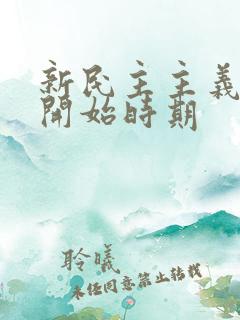 新民主主義
開始時期
聆曦
未经同意禁止转载